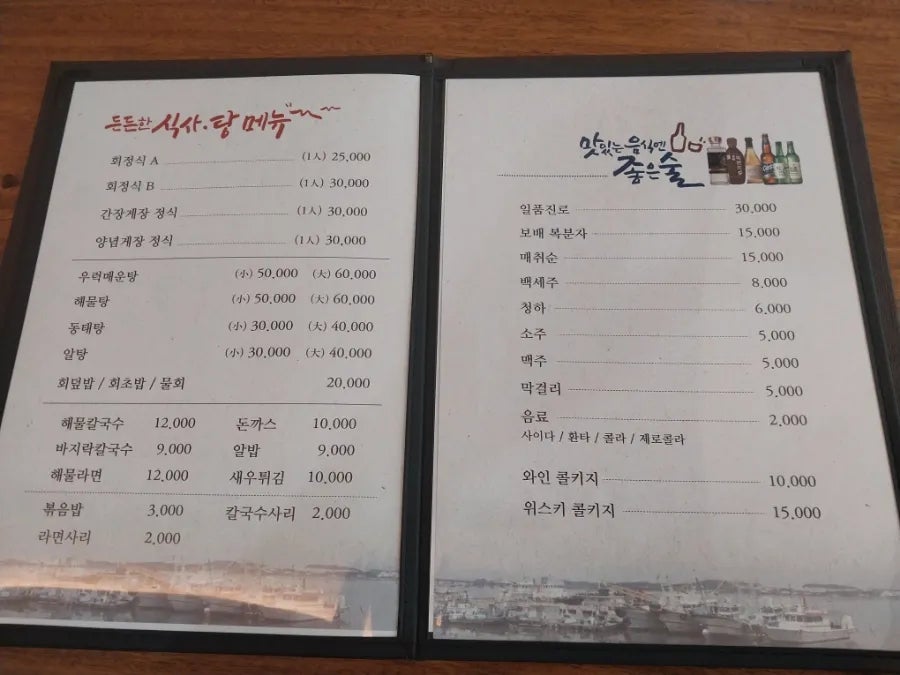 든든한 식사·탕 메뉴
회정식 A (1人) 25,000
회정식 B (1人) 30,000
간장게장 정식 (1人) 30,000
양념게장 정식 (1人) 30,000
우럭매운탕 (小) 50,000 (大) 60,000
해물탕 (小) 50,000 (大) 60,000
동태탕 (小) 30,000 (大) 40,000
알탕 (小) 30,000 (大) 40,000
회덮밥 / 회초밥 / 물회 20,000
해물칼국수 12,000 돈까스 10,000
바지락칼국수 9,000 알밥 9,000
해물라면 12,000 새우튀김 10,000
볶음밥 3,000 칼국수사리 2,000
라면사리 2,000
맛있는 음식엔
좋은술
일품진로 30,000
보배 복분자 15,000
매취순 15,000
백세주 8,000
청하 6,000
소주 5,000
맥주 5,000
막걸리 5,000
음료 2,000
사이다 / 환타 / 콜라 / 제로콜라
와인 콜키지 10,000
위스키 콜키지 15,000